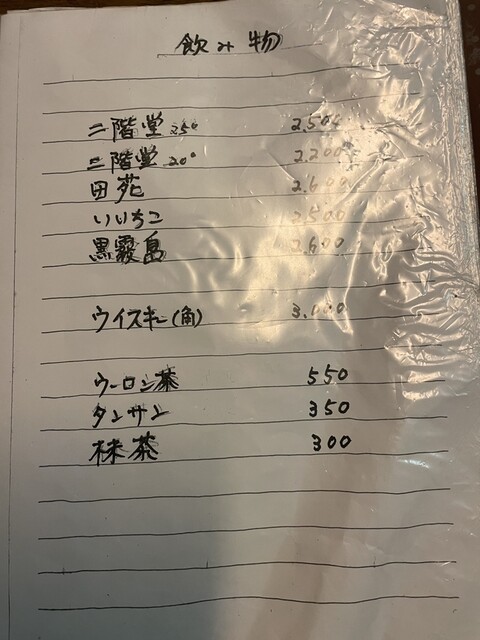 飲み物
二階堂 25° 2,500
二階堂 20° 2,200
田苑 2,600
いいちこ 2,500
黒霧島 2,600
ウイスキー(角) 3,000
ウーロン茶 550
タンサン 350
抹茶 300